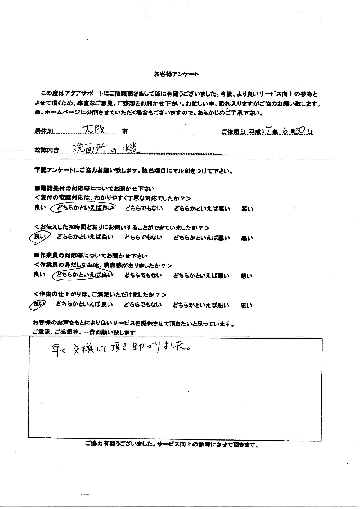 お客様アンケート
この度はアクアサポートにご依頼頂き誠に有難うございました。今後、より良いサービス向上の参考と
させて頂くため、率直なご意見、ご感想をお聞かせ下さい。お忙しい中、恐れ入りますがご協力お願い致します。
尚、ホームページに公開させていただく場合もございますので、あらかじめご了承下さい。
居住地 大阪 市
ご依頼日 平成 年 6月 日
故障内容 洗面所の水栓
下記アンケートにご協力お願い致します。該当項目に○をつけて下さい。
■電話受付の対応等についてお聞かせ下さい
<受付の電話対応は、わかりやすく丁寧な対応でしたか?>
良い どちらかといえば良い どちらでもない どちらかといえば悪い 悪い
<お伝えした時間どおりにお伺いすることができていましたか?>
良い どちらかといえば良い どちらでもない どちらかといえば悪い 悪い
■作業員の対応等についてお聞かせ下さい
<作業員の身だしなみは、清潔感がありましたか?>
良い どちらかといえば良い どちらでもない どちらかといえば悪い 悪い
<作業の仕上がりは、ご満足いただけましたか?>
良い どちらかといえば良い どちらでもない どちらかといえば悪い 悪い
お客様のお声をもとにより良いサービスを提供させて頂きたいと思っています。
ご意見、ご感想等、一言お願い致します
早く交換して頂き助かりました。
ご協力有難うございました。サービス向上の参考にさせて頂きます。